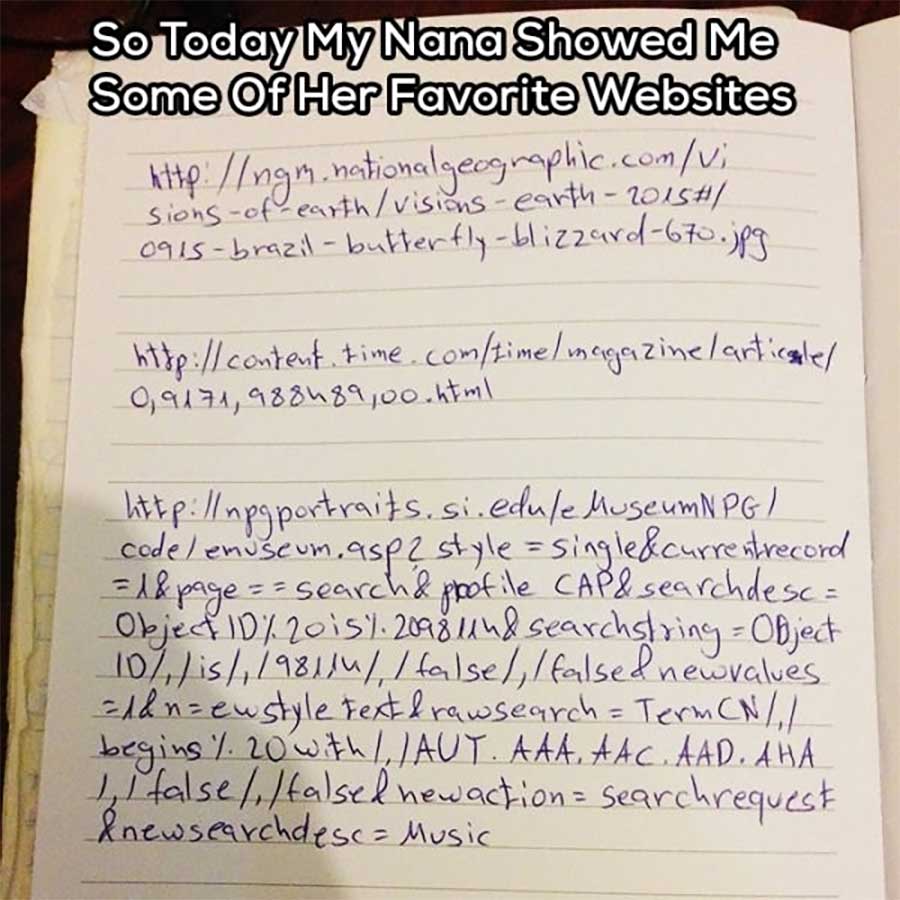 So Today My Nana Showed Me
Some Of Her Favorite Websites
http://ngm.nationalgeographic.com/vi
sions-of-earth/visions-earth-2015#/
0915-brazil-butterfly-blizzard-670.jpg
http://content.time.com/time/magazine/article/
0,9171,988489,00.html
http://npgportraits.si.edu/eMuseumNPG/
code/emuseum.asp? style=single&currentrecord
=1&page==search& profile CAP&searchdesc=
Object ID%20is%2098114&searchstring=OBject
ID/,/is/,/98114/,/false/,/false&newvalues
=1&n=ewstyle text&rawsearch=TermCN/,/
begins%20with/,/AUT.AAA.AAC.AAD.AHA
/,/false/,/false&newaction=searchrequest
&newsearchdesc=Music